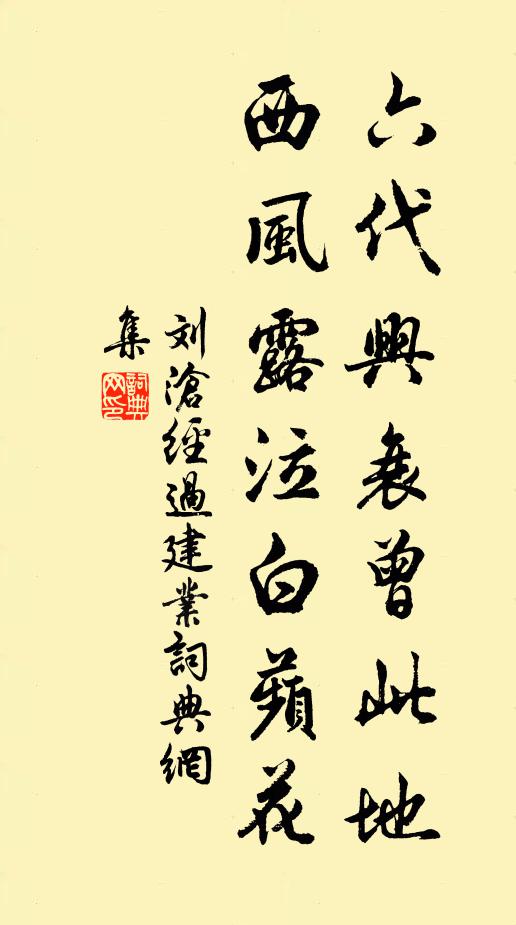 六代興衰曾此地
西風露泣白蘋花
刘滄經過建業詞典網
集
詞典
网印